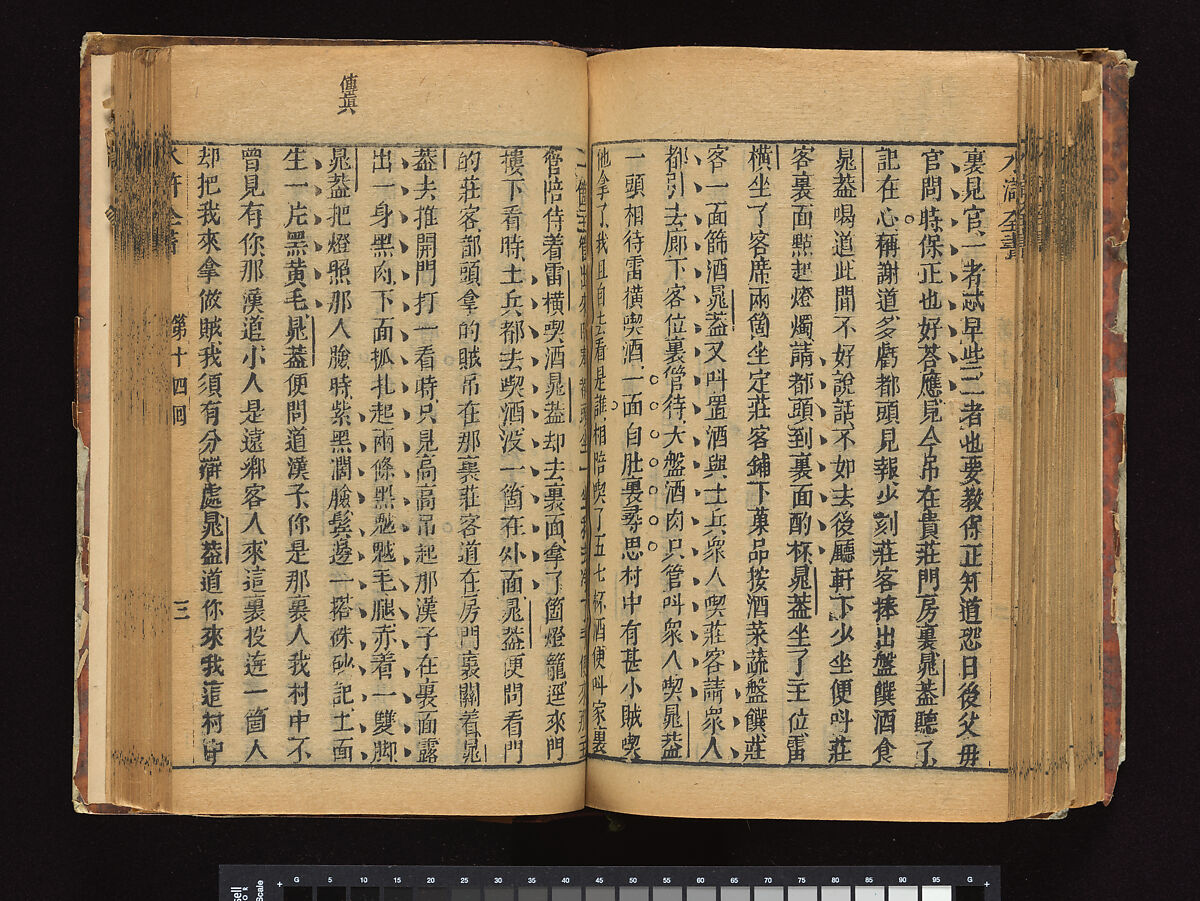 水滸全書
裏見官一者忒早些二者也要教保正知道恐日後父母
官問時保正也好荅應見今吊在貴莊門房裏晁葢聽了
記在心稱謝道多虧都頭見報少刻莊客捧出盤饌酒食
晁葢喝道此間不好說話不如去後廳軒下少坐便呌莊
客裏面㸃起燈燭請都頭到裏面酌杯晁葢坐了主位雷
橫坐了客席兩箇坐定莊客鋪下菓品按酒菜蔬盤饌莊
客一面篩酒晁葢又呌置酒與土兵衆人喫莊客請衆人
都引去廊下客位裏管待大盤酒肉只管呌衆人喫晁葢
一頭相待雷橫喫酒一面自肚裏尋思村中有甚小賊喫
他拿了我且自去看是誰相陪喫了五七杯酒便呌家裏
一箇主管出來
傳眞
管陪侍着雷橫喫酒晁葢却去裏面拿了箇燈籠逕來門
樓下看時土兵都去喫酒没一箇在外面晁葢便問看門
的莊客都頭拿的賊吊在那裏莊客道在房門裏關着晁
葢去推開門打一看時只見高高吊起那漢子在裏面露
出一身黑肉下面抓扎起兩條黑魆魆毛腿赤着一雙脚
晁葢把燈照那人臉時紫黑濶臉鬂邊一搭硃砂記上面
生一片黑黄毛晁葢便問道漢子你是那裏人我村中不
曾見有你那漢道小人是遠鄉客人來這裏投逩一箇人
却把我來拿做賊我須有分辯處晁葢道你來我這村中
水滸全書 第十四囘 三
G 5 10 15 20 25 30 35 40 45 50 55 60 65 70 75 80 85 90 95 G
Scale